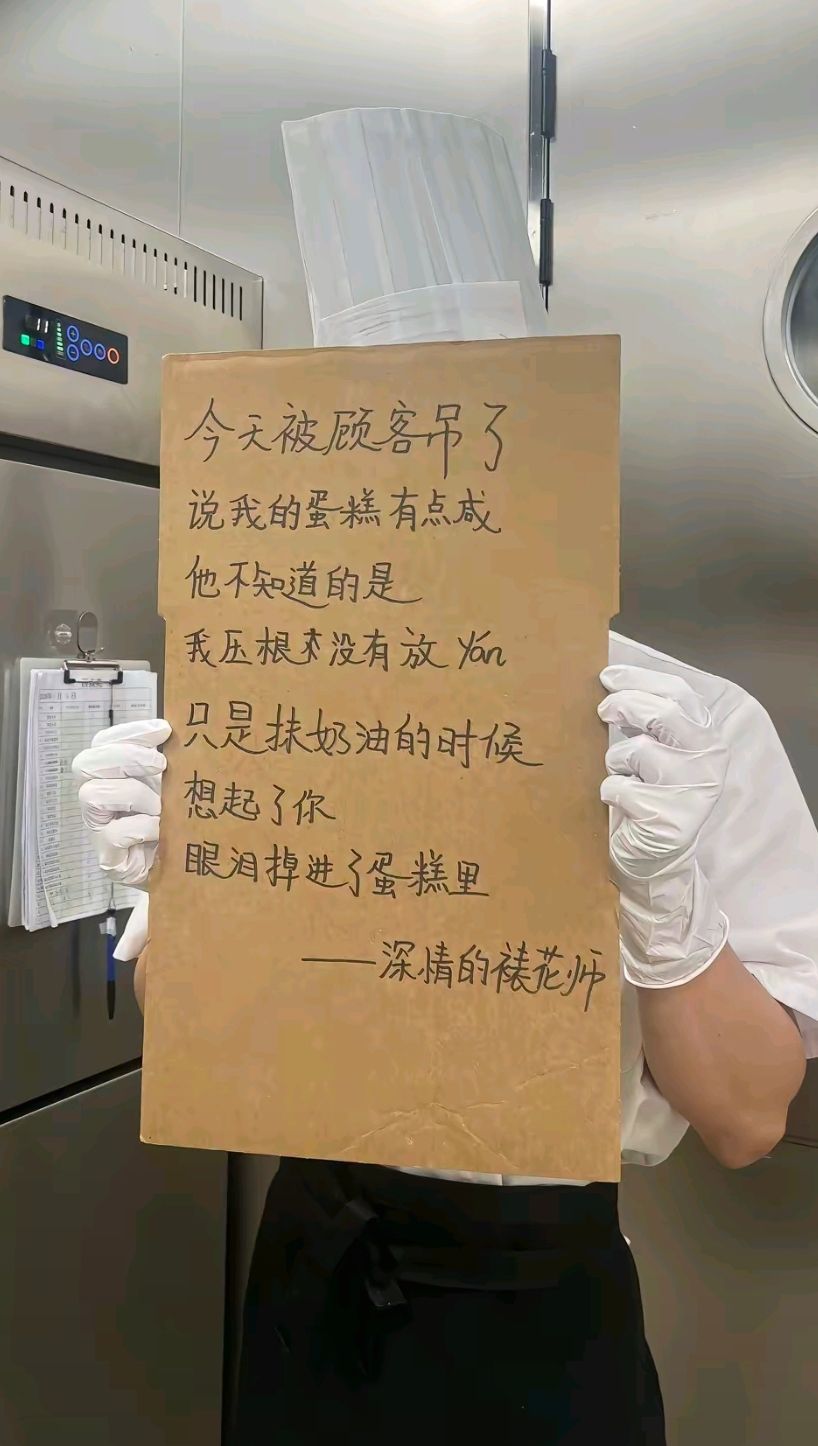 今天被顾客吊了
说我的蛋糕有点咸
他不知道的是
我压根本没有放 Yán
只是抹奶油的时候
想起了你
眼泪掉进了蛋糕里
——深情的裱花师